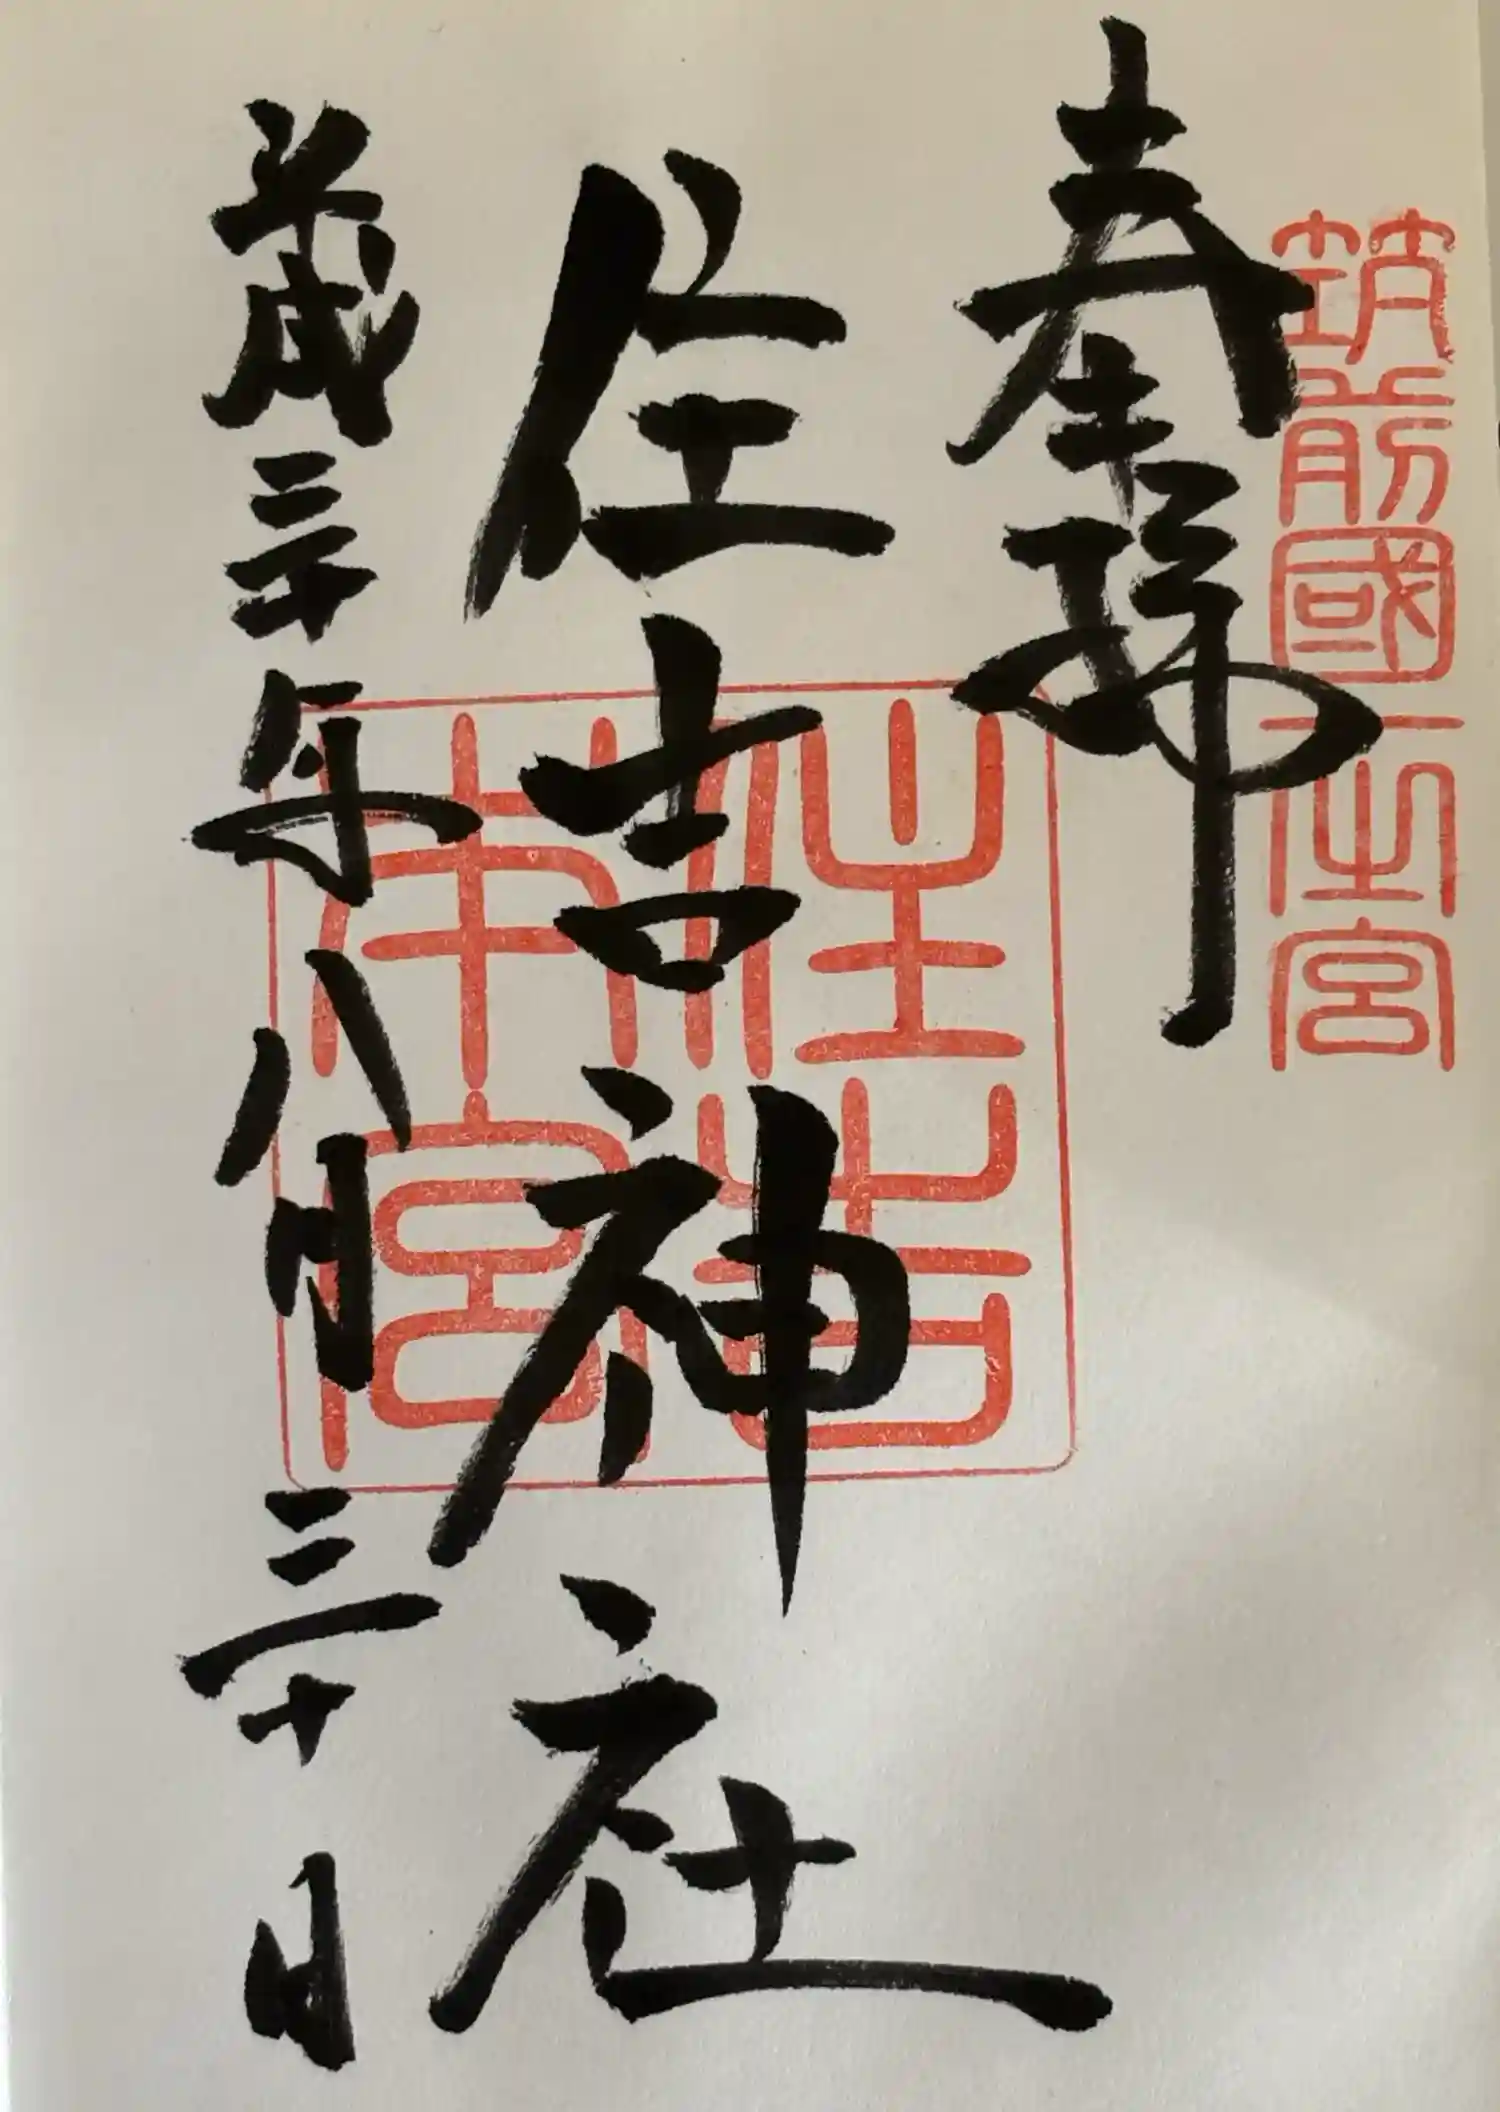 筑前國一之宮
奉拝
住吉神社
住吉
本宮
平成三十年八月三十日